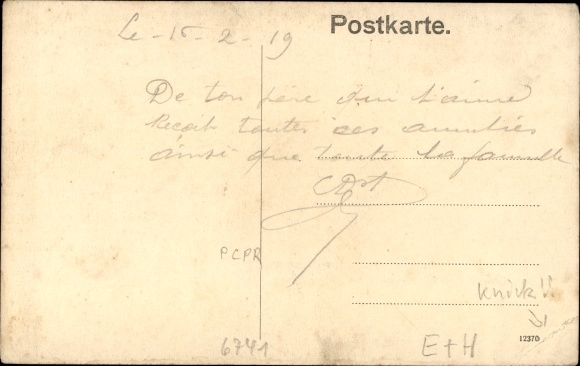 Postkarte.
Le - 15 - 2 - 19
De ton père qui t'aime
Reçoit toutes ses amitiés
ainsi que toute la famille
PCPR
Knick!!
12370
6741
E+H